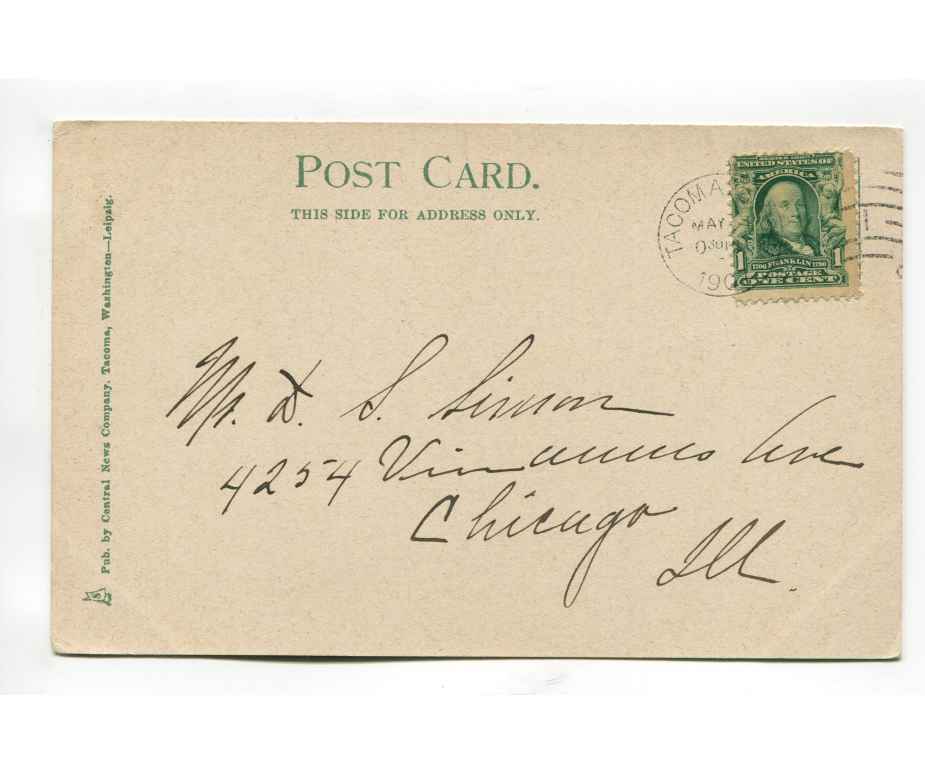 POST CARD.
THIS SIDE FOR ADDRESS ONLY.
TACOMA
MAY
190
UNITED STATES OF
AMERICA
1 1706 FRANKLIN 1790 1
POSTAGE
ONE CENT
Mr. D. S. Simon
4254 Ave
Chicago
Ill.
Pub. by Central News Company. Tacoma, Washington—Leipzig.